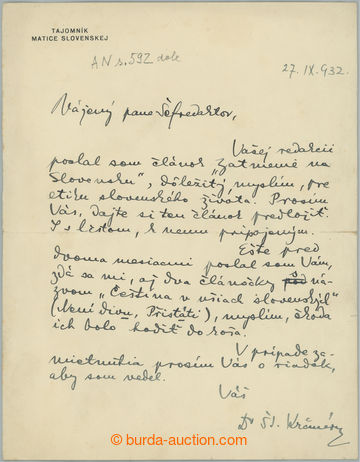 TAJOMNÍK
MATICE SLOVENSKEJ
AN s. 592 dole
27. IX. 932.
Vážený pane Šéfredaktor,
Vašej redakcii
poslal som článok „Zatmenie na
Slovensku“, dôležitý, myslím, pre
etiku slovenského života. Prosím
Vás, dajte si ten článok predložiť
I s listom, k nemu pripojeným.
Ešte pred
dvoma mesiacmi poslal som Vám,
zdá sa mi, aj dva článočky pod ná-
zvom „Čeština v ušiach slovenských“
(Není divu, Přistáti), myslím, škoda
ich bolo hodiť do koša.
V prípade za-
mietnutia prosím Vás o riadok,
aby som vedel.
Váš
Dr Št. Krčméry
burda-auction.com